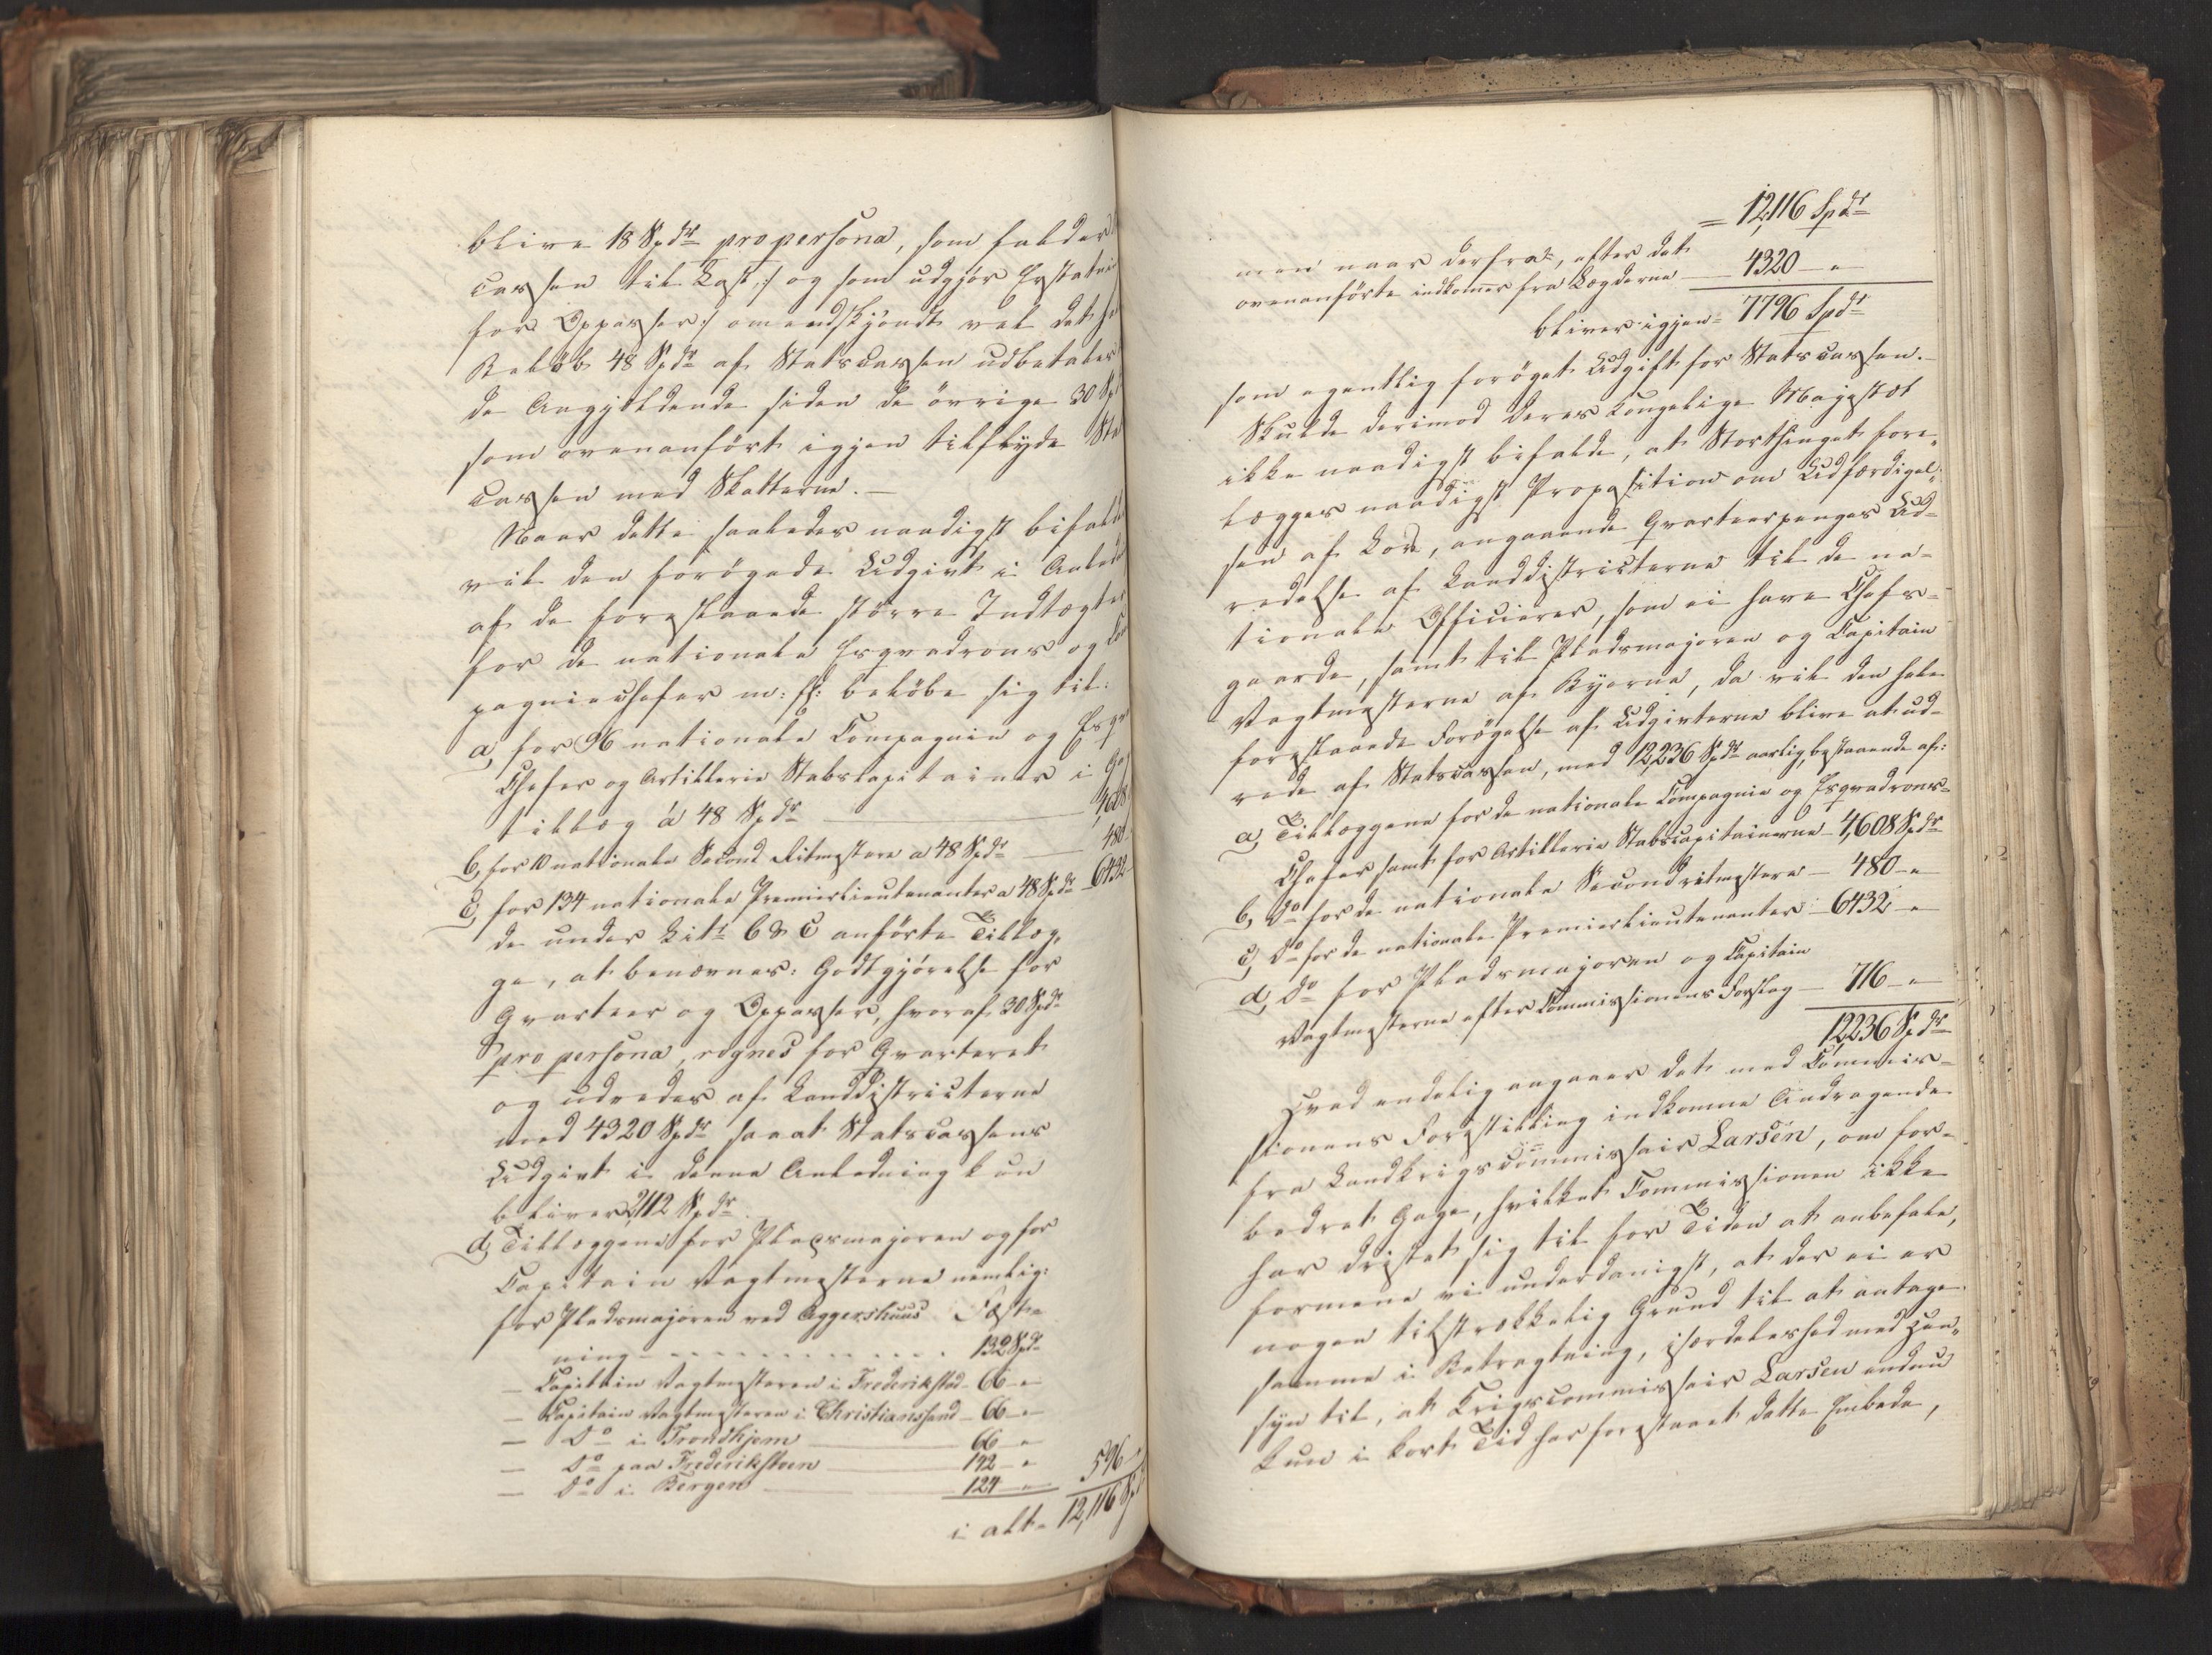 blive 18 Spdr pro persona, som falder
cassen til Last, og som udgjør Erstatni
for Oppasser :/ omendskjöndt vel det he
Belöb 48 Spdr af Statscassen udbetales
de Angjeldende siden de övrige 30 Sp
som ovenanfört igjen tilflyde Sta
cassen med Skatterne. —
Naar dette saaledes naadigst bifald
vil den forögede Udgivt i Anled
af de foreslaaede större Indtægter
for de nationale Esqvadrons og Com
pagniechefer m: fl: belöbe sig til:
a, for 96 nationale Compagnie og Esqv
Chefer og Artillerie Stabscapitainer i Ga
tillæg á 48 Spdr — 4,608
b, for 10 nationale Second Ritmestere a 48 Spdr — 480
c, for 134 nationale Premierlieutenanter a 48 Spdr — 6432
de under Litr b & c anförte Tillæg,
ge, at benævnes: Godtgjörelse for
Qvarteer og Oppasser, hvoraf 30 Spdr
pro persona, regnes for Qvarteret
og udredes af Landdistricterne
med 4320 Spdr saaat Statscassens
Udgivt i denne Anledning kun
bliver 2,112 Spdr.
d, Tillæggene for Pladsmajoren og for
Capitain Vagtmesterne nemlig:
for Pladsmajoren ved Aggershuus Fæst=
ning - - - - - - - - - - 132 Spdr
— Capitain Vagtmesteren i Frederikstad - 66 - "
— Capitain Vagtmesteren i Christianssand - 66 - "
— Do i Trondhjem — 66 - "
— Do paa Frederiksteen — 142 - "
— Do i Bergen — 124 - " 596 - "
i alt = 12,116 Sp
= 12,116 Spdr
men naar derfra, efter det
ovenanförte indkommer fra Lægderne — 4320 — "
bliver igjen = 7796 Spdr
som egentlig foröget Udgift for Statscassen. —
Skulde derimod Deres Kongelige Majestæt
ikke naadigst bifalde, at Storthinget fore,,
lægges naadigst Proposition om Udfærdigel,,
sen af Lov, angaaende Qvarteerpenges Ud=
redelse af Landdistricterne til de na=
tionale Officierer, som ei have Chefs=
gaarde, samt til Pladsmajoren og Capitain
Vagtmesterne af Byerne, da vil den hele
foreslaaede Forögelse af Udgivterne blive at ud=
rede af Statscassen, med 12,236 Spdr aarlig, bestaaende af:
a, Tillæggene for de nationale Compagnie og Esqvadrons=
Chefer samt for Artillerie Stabscapitainerne — 4,608 Spdr
b, Do for de nationale Secondritmestere — 480 - "
c, Do for de nationale Premierlieutenanter — 6432 - "
d, Do for Pladsmajoren og Capitain
Vagtmesterne efter Commissionens Forslag — 716 - "
12236 Spdr
Hvad endelig angaaer det med Commis=
sionens Forestilling indkomne Andragende
fra Landkrigscommissair Larsen, om for=
bedret Gage, hvilket Commissionen ikke
har dristet sig til for Tiden at anbefale,
formene vi underdanigst, at der ei er
nogen tilstrækkelig Grund til at antage
samme i Betragtning, især­deleshed med Hen,,
syn til, at Krigscommissair Larsen endnu
kun i kort Tid har forestaaet dette Embede,